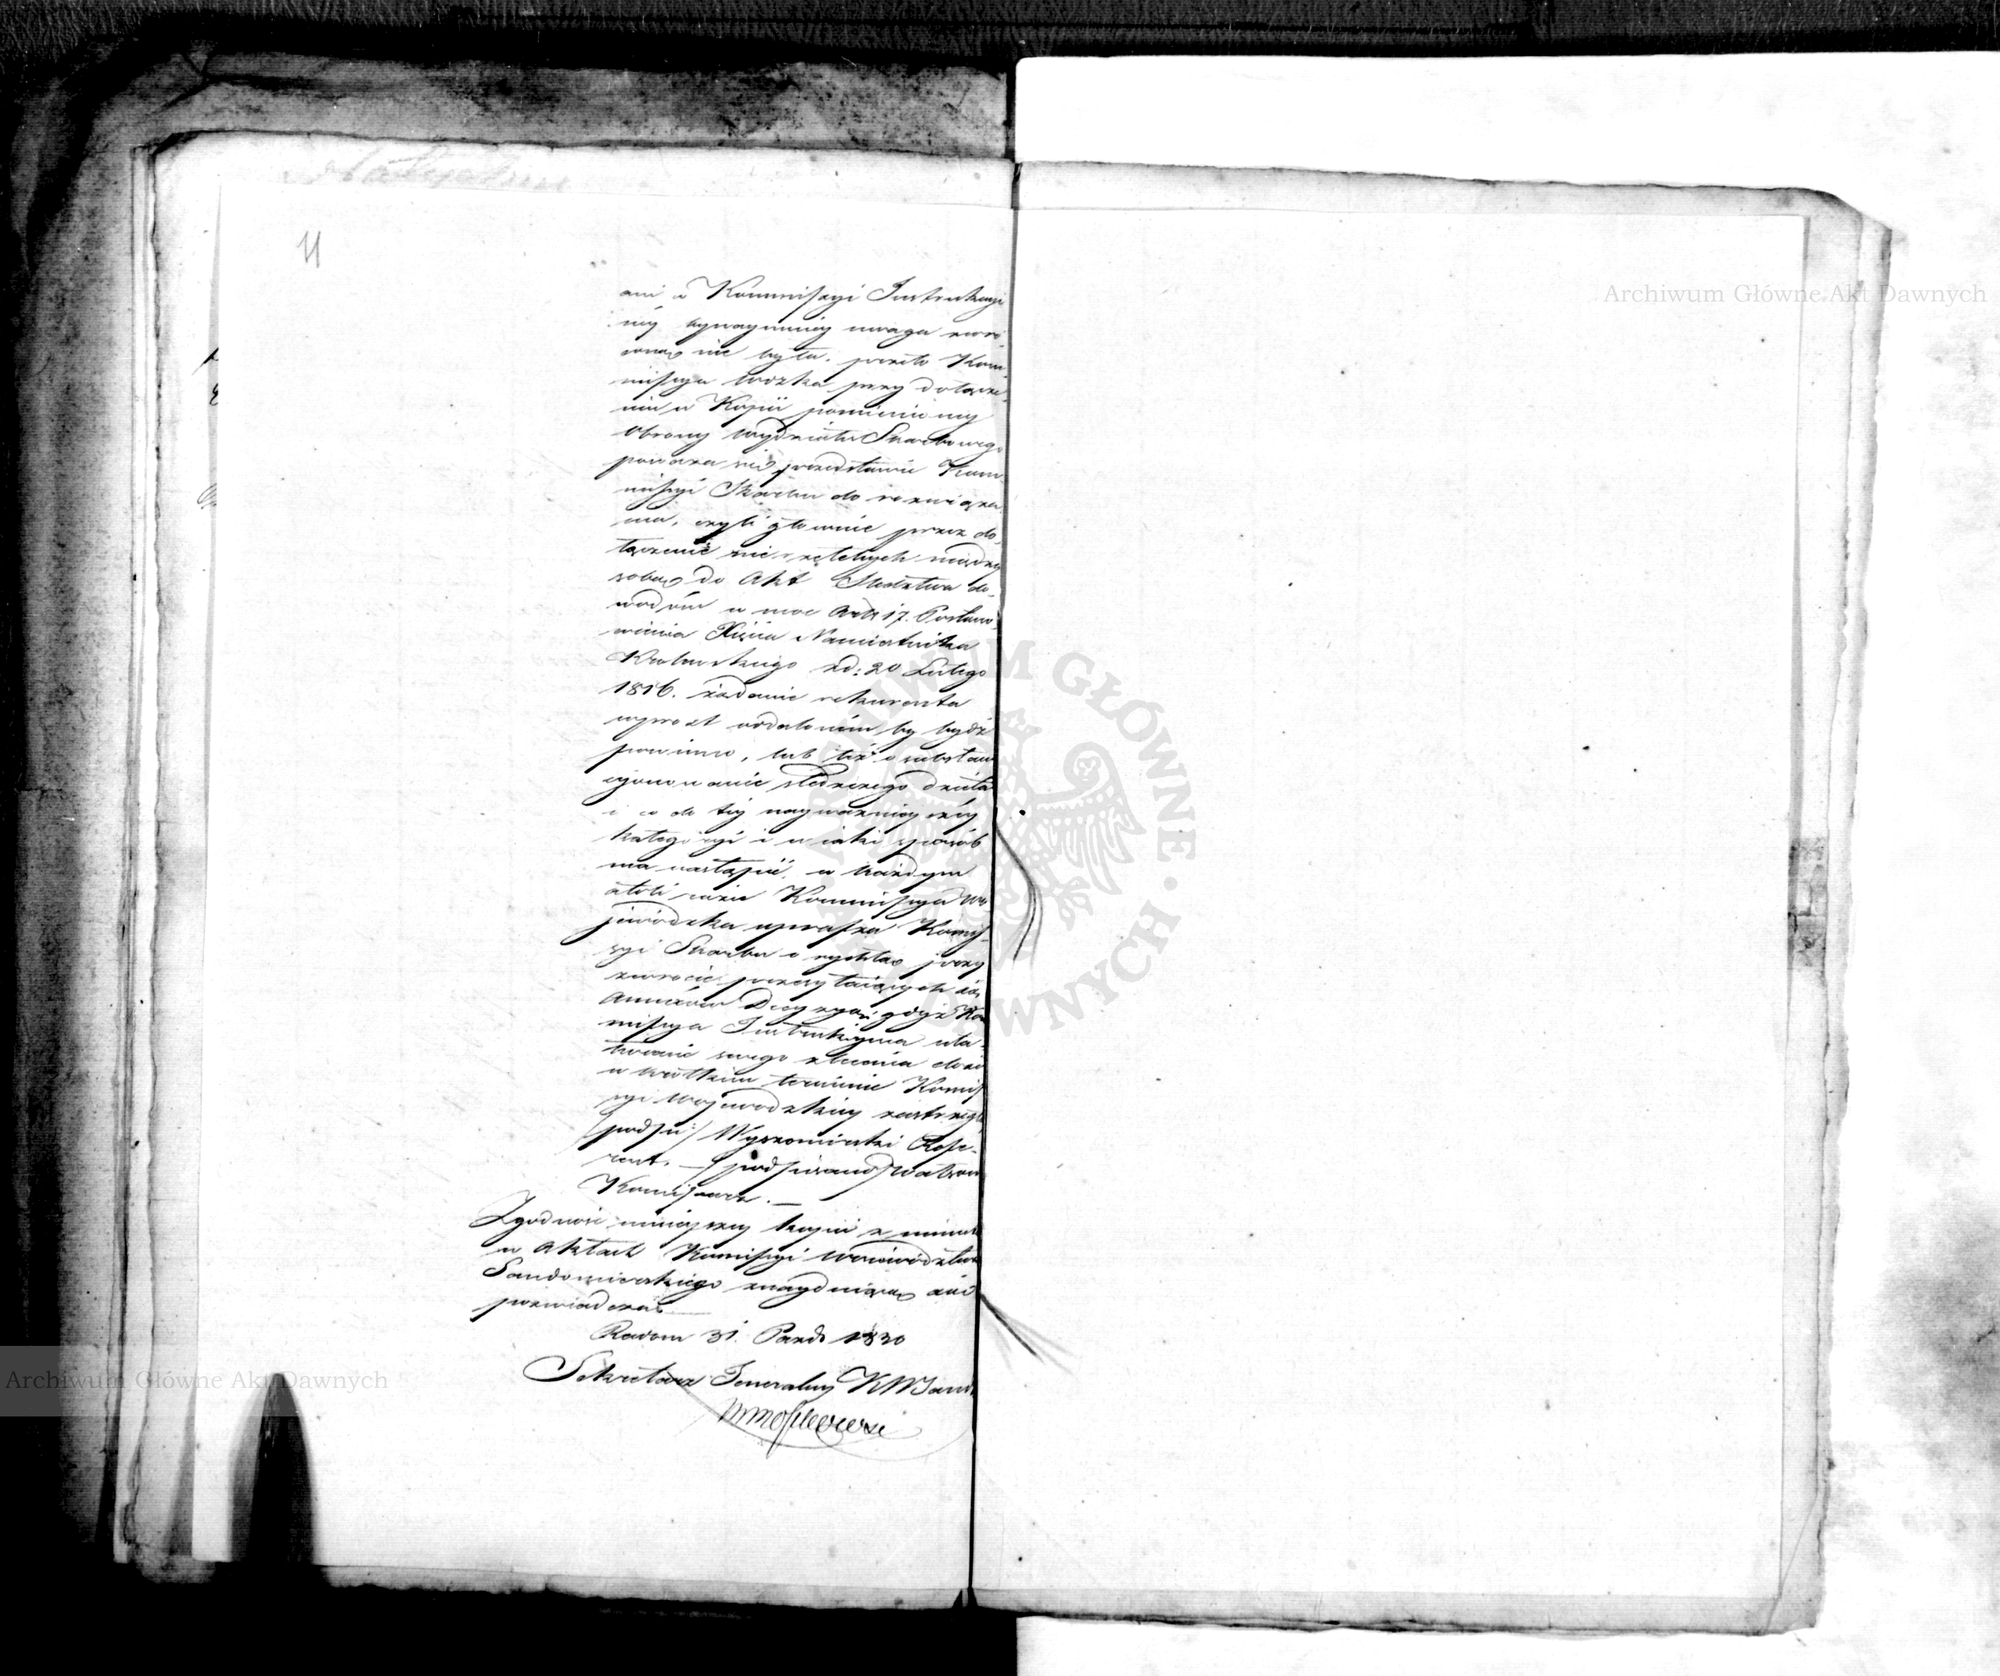 11
ani w Kommissyi Instrukcyi
ney bynaymniey uwaga zwró
cona nie była. przeto Kom¬
missya Wodzka przy dołącze¬
niu w Kopii pomienioney
Obrony Wydziału Skarbowego
poważa się przedstawić Kom¬
missyi Skarbu do rozwiąza
nia, czyli głównie przez do¬
łączenie nierzetelnych między
sobą do Akt Śledztwa do¬
wodów w moc Artł 17. Postano
wienia Xięcia Namiestnika
Królewskiego z d: 20 Lutego
1816. żądanie rekurenta
wprost oddalonem by bydź
powinno, lub też o substan
cyonowanie śledczego dzieła
i co do tey nayważnieyszey
kategoryi i w jaki sposób
ma nastąpić. w każdym
atoli razie Kommissya Wo
jewódzka uprasza Komis¬
syi Skarbu o rychłe przy
zwrocie przesyłaiących się
Annexów Decyzyą, gdyż Kom
missya Instrukcyina uła¬
twienie swego zlecenia
w krótkim terminie Komis
syi Wojewódzkiey zastrzegła
/podp:/ Wyszomirski Refe¬
rent. — /podpisano/
Komissarz. —
Zgodność ninieyszey kopii z minutą
w Aktach Komissyi Województwa
Sandomierskiego znayduiącą się
poświadcza
Radom 31. Paźdr 1830
Sekretarz Jeneralny K W Sand
Archiwum Główne Akt Dawnych
Archiwum Główne Akt Dawnych
ARCHIWUM GŁÓWNE AKT DAWNYCH